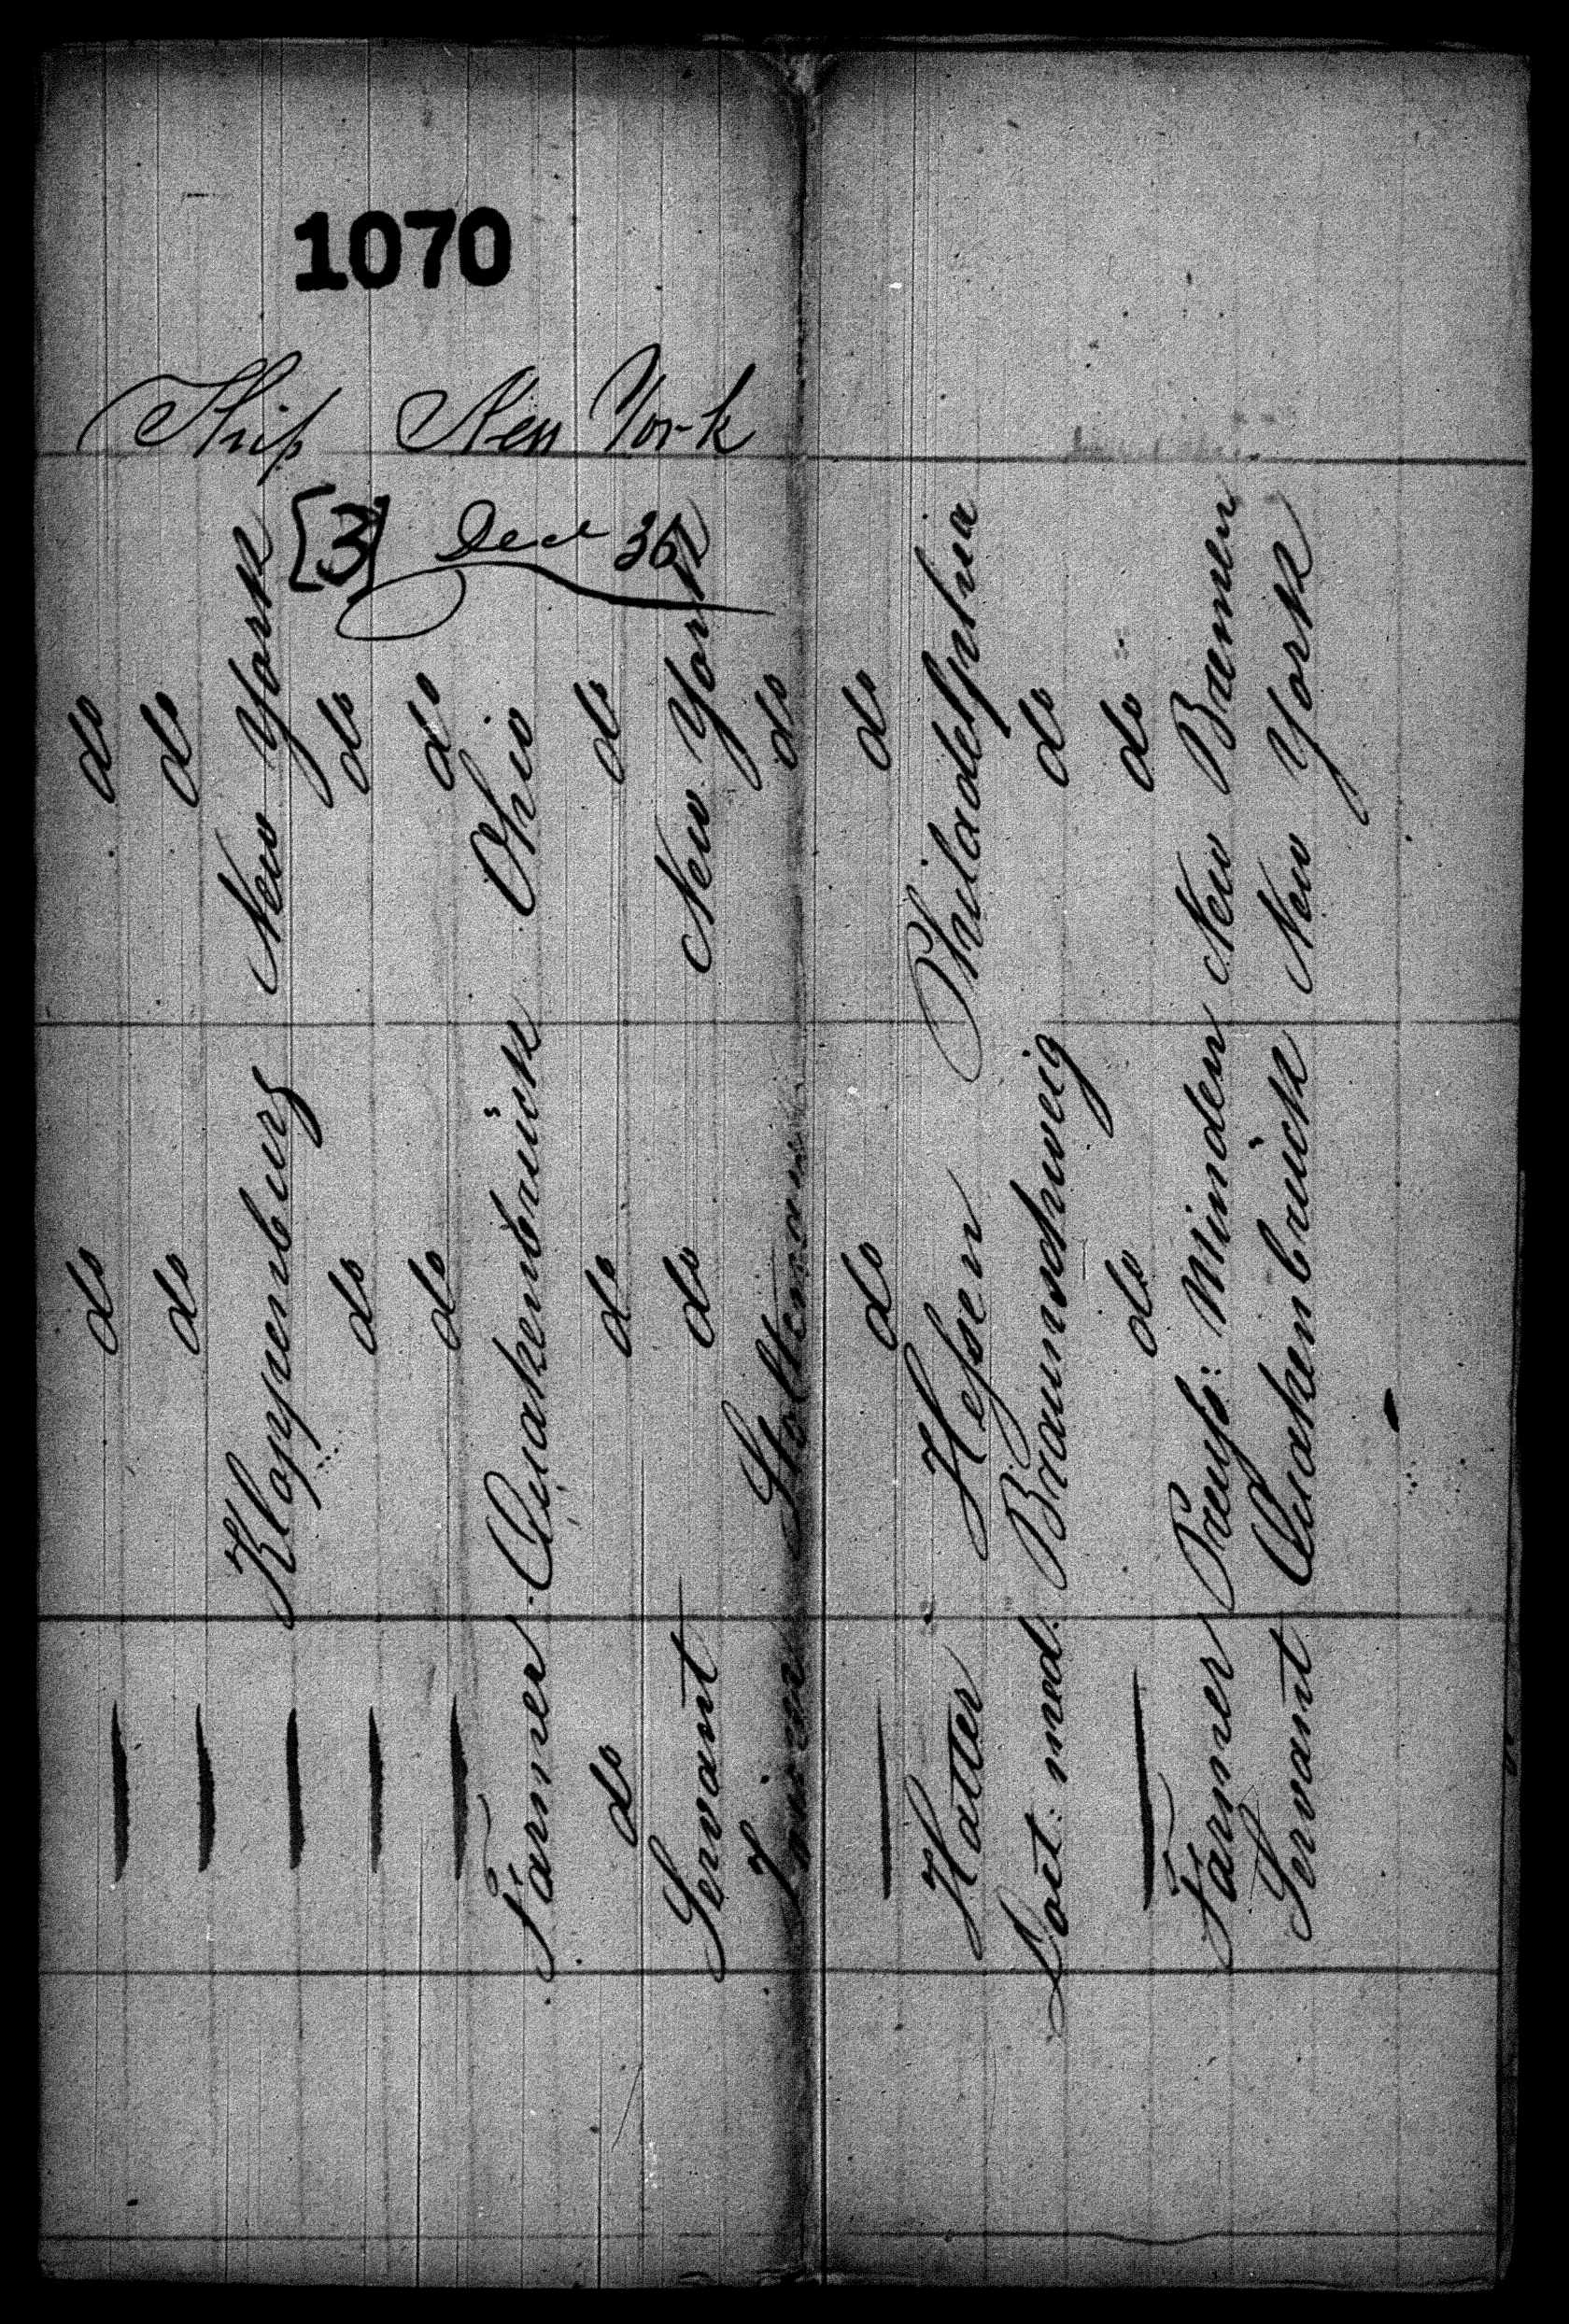 1070
Ship New York
[3] Dec 36
— do do
— do do
— Kloppenburg New York
— do do
— do do
Farmer Quakenbrück Ohio
do do do
Servant do New York
do
— do do
Hatter Heßen Philadelphia
med: Braunschweig do
— do do
Farmer Preuß: Minden New Bremen
Servant Quakenbrück New York